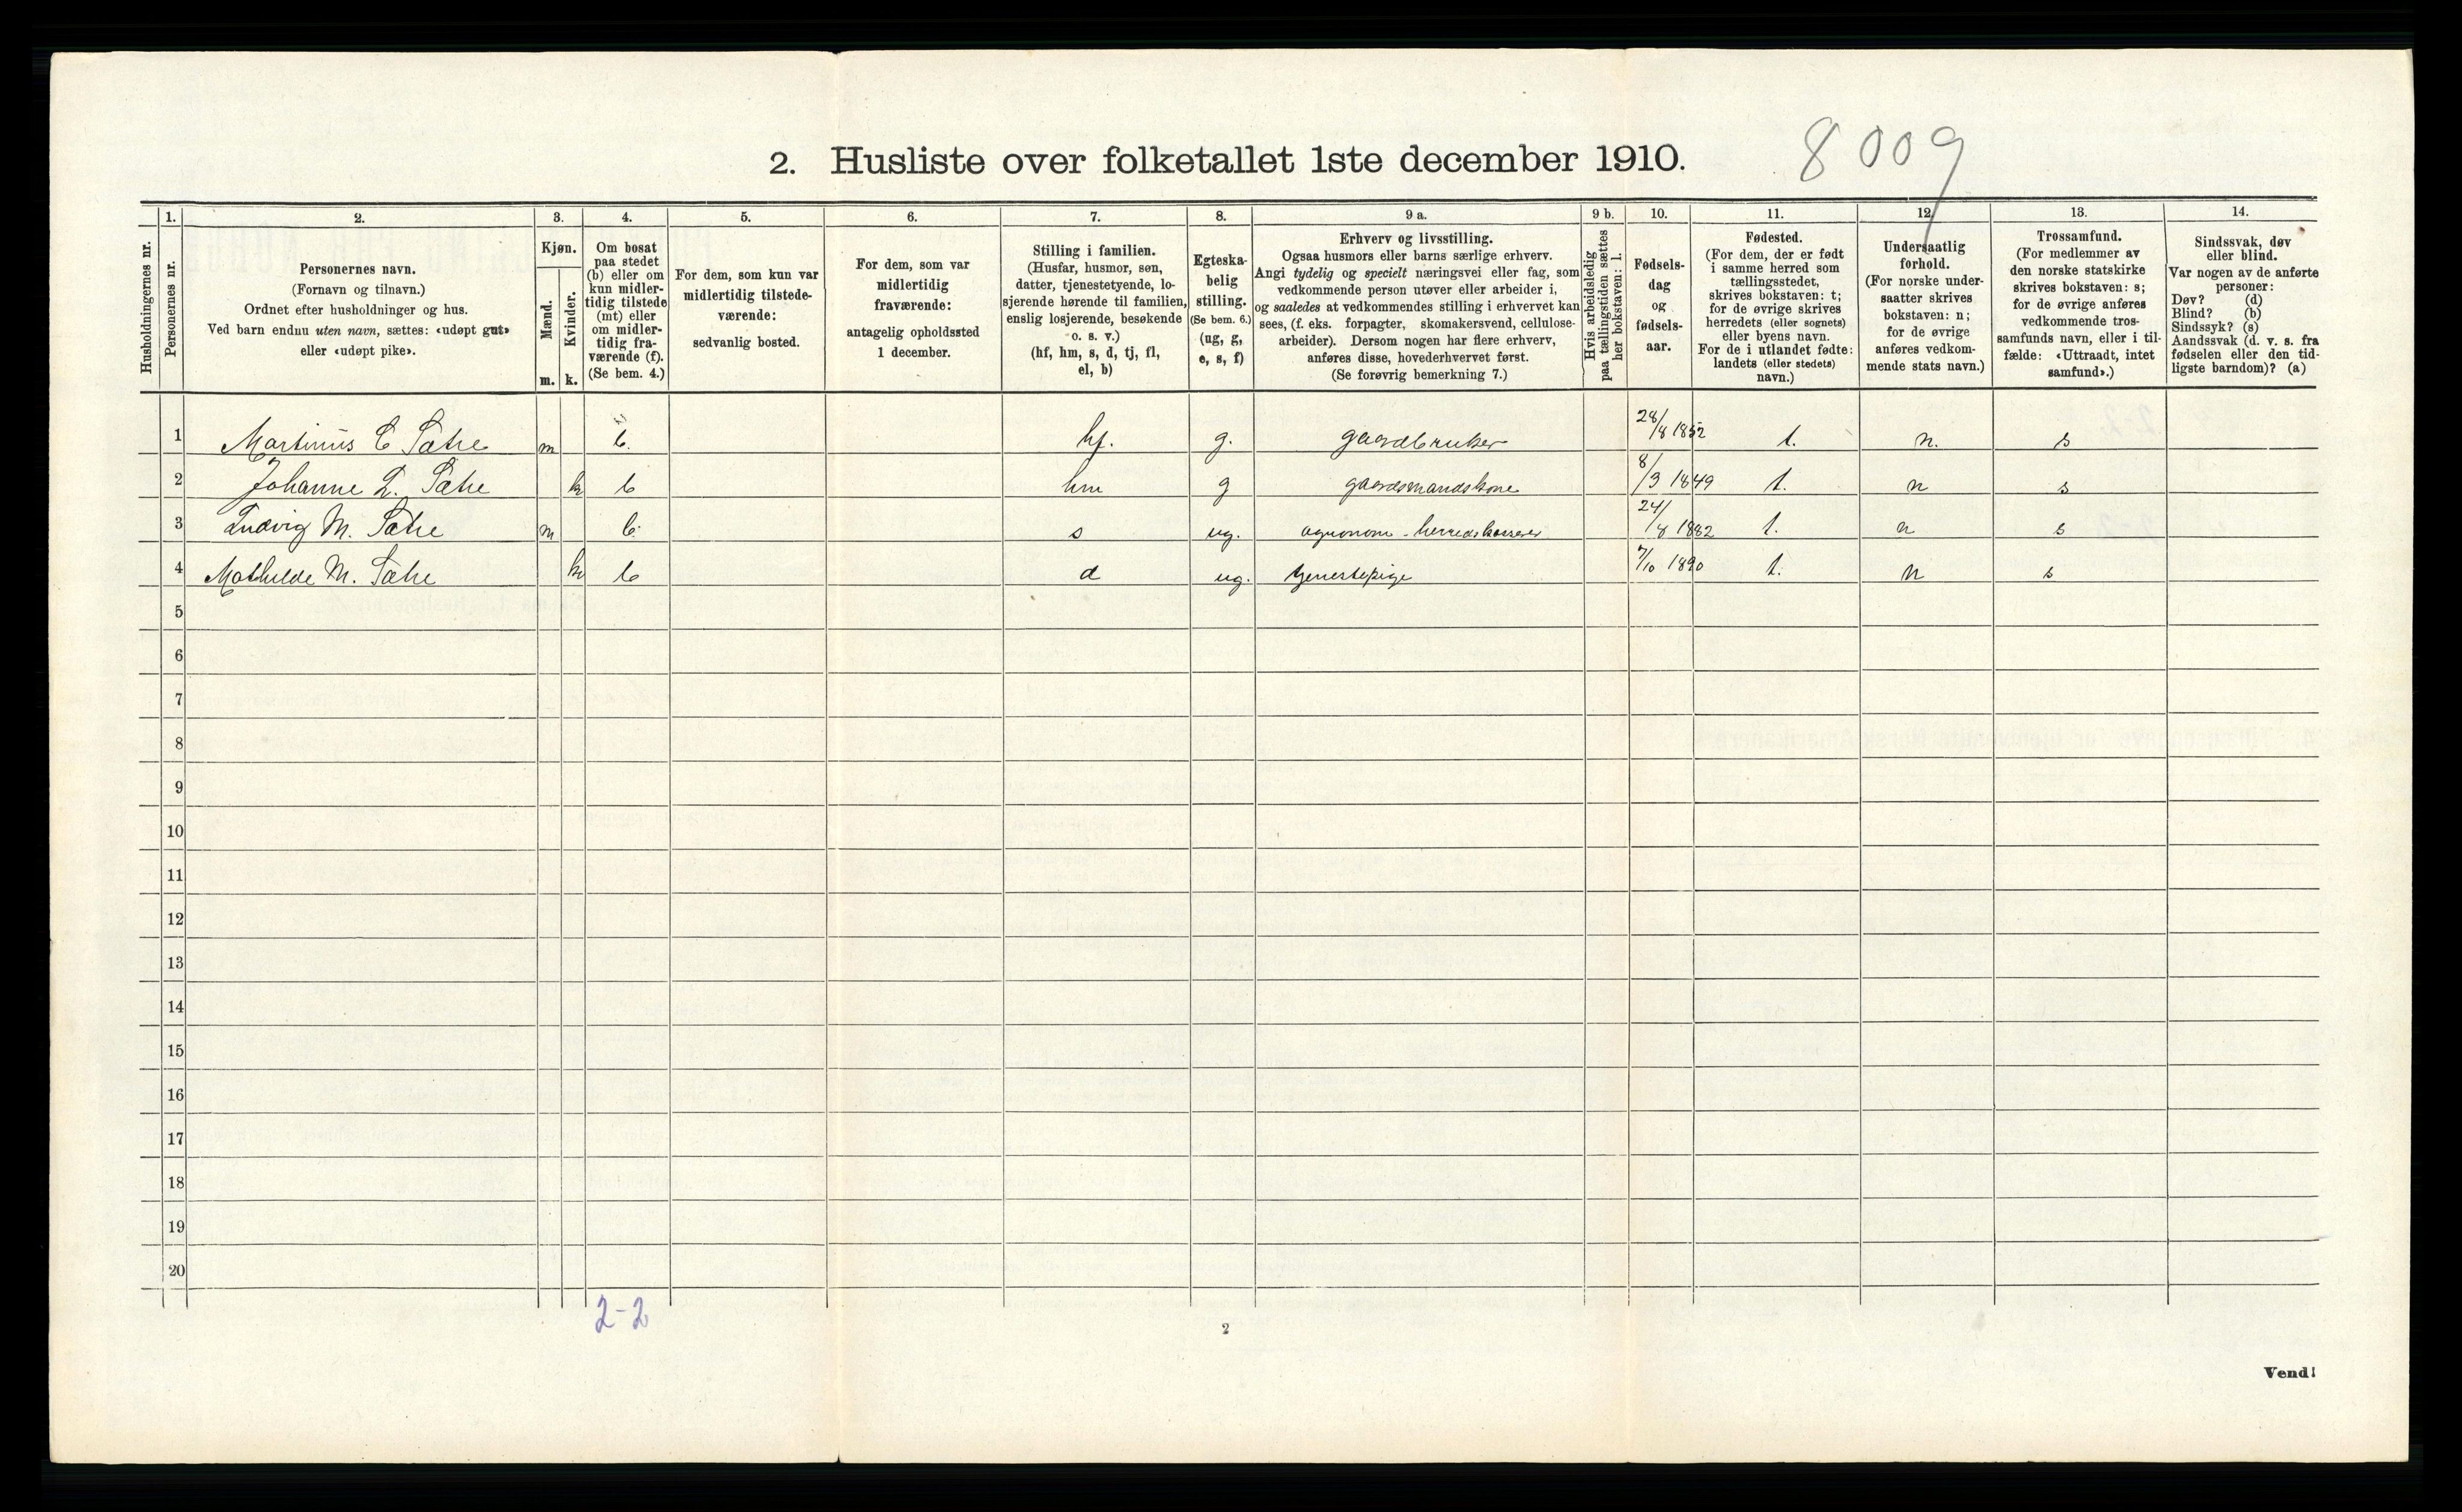 2. Husliste over folketallet 1ste december 1910. 8009
1. 2. 3. 4. 5. 6. 7. 8. 9 a. 9 b. 10. 11. 12. 13. 14.
Husholdningernes nr.
Personernes nr.
Personernes navn.
(Fornavn og tilnavn.)
Ordnet efter husholdninger og hus.
Ved barn endnu uten navn, sættes: «udøpt gut»
eller «udøpt pike».
Kjøn.
Mænd.
Kvinder.
m. k.
Om bosat
paa stedet
(b) eller om
kun midler-
tidig tilstede
(mt) eller
om midler-
tidig fra-
værende (f).
(Se bem. 4.)
For dem, som kun var
midlertidig tilstede-
værende:
sedvanlig bosted.
For dem, som var
midlertidig
fraværende:
antagelig opholdssted
1 december.
Stilling i familien.
(Husfar, husmor, søn,
datter, tjenestetyende, lo-
sjerende hørende til familien,
enslig losjerende, besøkende
o. s. v.)
(hf, hm, s, d, tj, fl,
el, b)
Egteska-
belig
stilling.
(Se bem. 6.)
(ug, g,
e, s, f)
Erhverv og livsstilling.
Ogsaa husmors eller barns særlige erhverv.
Angi tydelig og specielt næringsvei eller fag, som
vedkommende person utøver eller arbeider i,
og saaledes at vedkommendes stilling i erhvervet kan
sees, (f. eks. forpagter, skomakersvend, cellulose-
arbeider). Dersom nogen har flere erhverv,
anføres disse, hovederhvervet først.
(Se forøvrig bemerkning 7.)
Hvis arbeidsledig
paa tællingstiden sættes
her bokstaven: l.
Fødsels-
dag
og
fødsels-
aar.
Fødested.
(For dem, der er født
i samme herred som
tællingsstedet,
skrives bokstaven: t;
for de øvrige skrives
herredets (eller sognets)
eller byens navn.
For de i utlandet fødte:
landets (eller stedets)
navn.)
Undersaatlig
forhold.
(For norske under-
saatter skrives
bokstaven: n;
for de øvrige
anføres vedkom-
mende stats navn.)
Trossamfund.
(For medlemmer av
den norske statskirke
skrives bokstaven: s;
for de øvrige anføres
vedkommende tros-
samfunds navn, eller i til-
fælde: «Uttraadt, intet
samfund».)
Sindssvak, døv
eller blind.
Var nogen av de anførte
personer:
Døv? (d)
Blind? (b)
Sindssyk? (s)
Aandssvak (d. v. s. fra
fødselen eller den tid-
ligste barndom)? (a)
1 Martinius C Sætre m b. hf. g. gaardbruker 28/8 1852 t. n. s
2 Johanne L. Sætre k b hm g gaardsmandskone 8/3 1849 t. n s
3 Ludvig M. Sætre m b. s ug. agronom - herredskasserer 24/8 1882 t. n s
4 Mathilde M. Sætre k b d ug. tjenestepige 7/10 1890 t. n s
5
6
7
8
9
10
11
12
13
14
15
16
17
18
19
20
2-2
2
Vend!